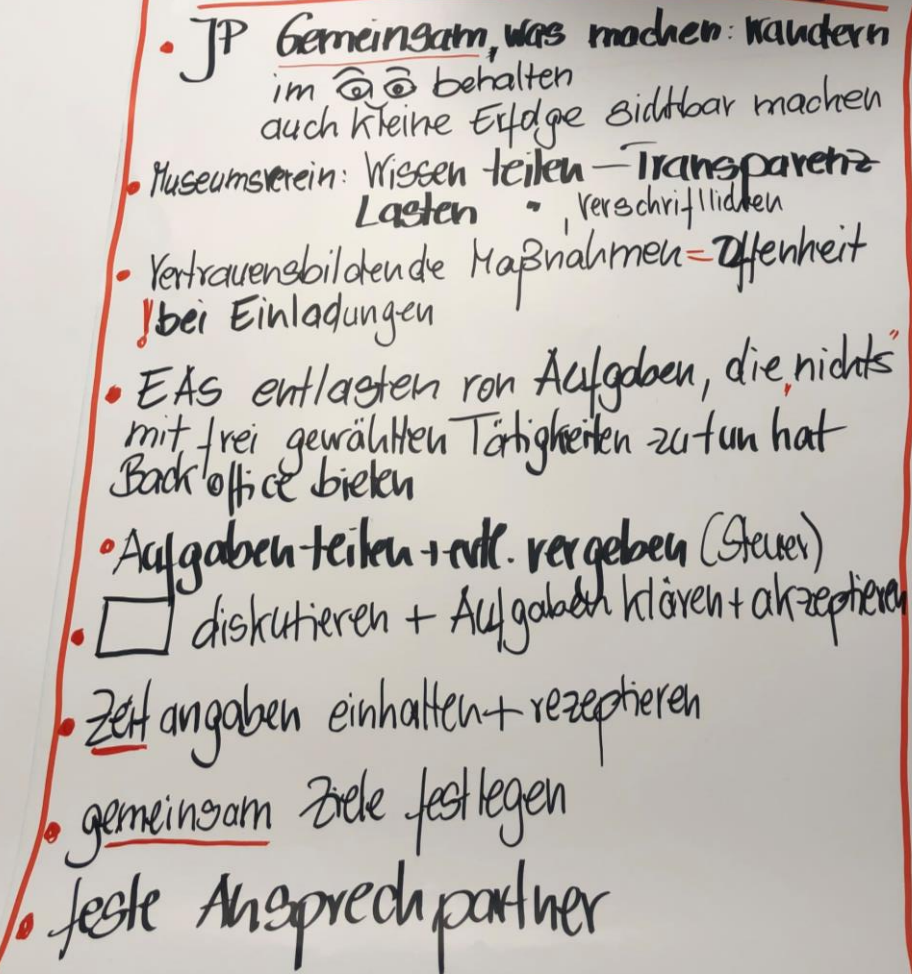 • JP Gemeinsam, was machen: wandern
im behalten
auch kleine Erfolge sichtbar machen
• Museumsverein: Wissen teilen – Transparenz
Lasten " , verschriftlichen
• Vertrauensbildende Maßnahmen = Offenheit
! bei Einladungen
• EAs entlasten von Aufgaben, die „nichts"
mit frei gewählten Tätigkeiten zu tun hat
Back office bieten
• Aufgaben teilen + evtl. vergeben (Steuer)
• diskutieren + Aufgaben klären + akzeptieren
• Zeitangaben einhalten + rezeptieren
• gemeinsam Ziele festlegen
• feste Ansprechpartner